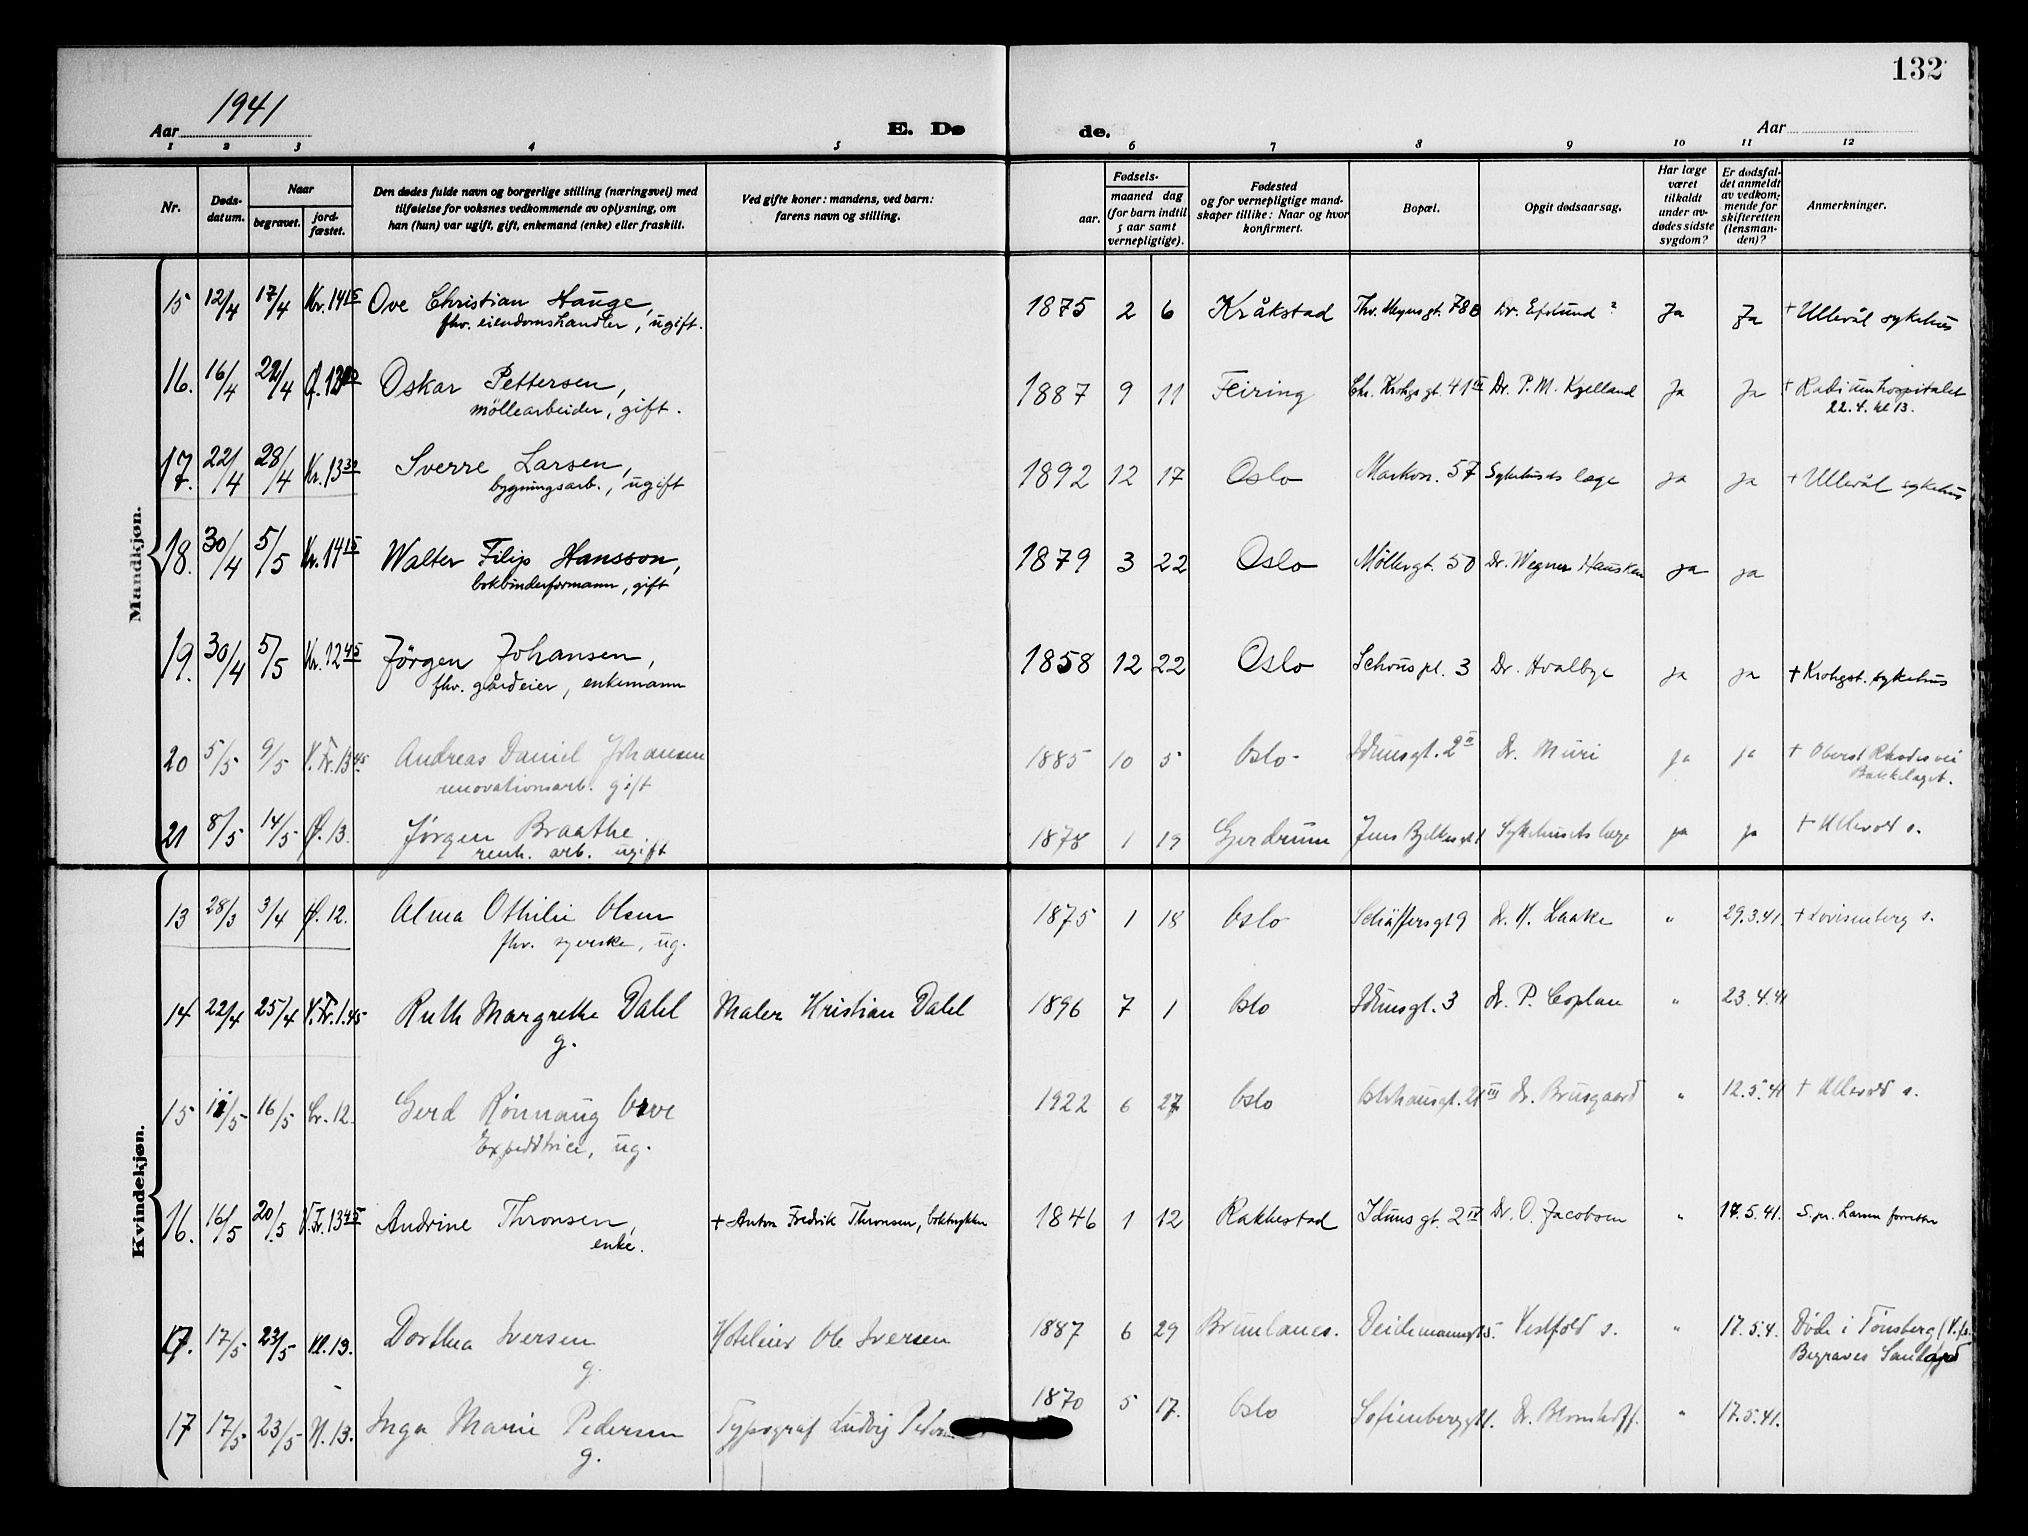 132
Aar 1941 E. Dø de. Aar
1 2 3 4 5 6 7 8 9 10 11 12
Nr.
Døds-
datum.
Naar
begravet.
jord-
fæstet.
Den dødes fulde navn og borgerlige stilling (næringsvei) med
tilføielse for voksnes vedkommende av oplysning, om
han (hun) var ugift, gift, enkemand (enke) eller fraskilt.
Ved gifte koner: mandens, ved barn:
farens navn og stilling.
Fødsels-
aar.
maaned dag
(for barn indtil
5 aar samt
vernepligtige).
Fødested
og for vernepligtige mand-
skaper tillike: Naar og hvor
konfirmert.
Bopæl.
Opgit dødsaarsag.
Har læge
været
tilkaldt
under av-
dødes sidste
sygdom?
Er dødsfal-
det anmeldt
av vedkom-
mende for
skifteretten
(lensman-
den)?
Anmerkninger.
Mandkjøn.
15 12/4 17/4 Kr. 14 15 Ove Christian Hauge, 1875 2 6 Kråkstad Thv. Meyersgt. 78 Dr. Ja Ja + Ullevål sykehus
fhv. eiendomshandler, ugift.
16. 16/4 22/4 Oskar Pettersen, 1887 9 11 Feiring Chr. Krohgs gt. 41 III Dr. P. M. Kjelland Ja Ja + Radiumhospitalet
møllearbeider, gift. 22.4. kl 13.
17. 22/4 28/4 Kr. 13 30 Sverre Larsen, 1892 12 17 Oslo Markvn. 57 Sykehusets læge ja ja + Ullevål sykehus
bygningsarb., ugift
18. 30/4 5/5 Kr. 14 15 Walter Filip Hansson, 1879 3 22 Oslo Møllergt. 50 Dr. Wegner Hausken ja ja
bokbinderformann, gift
19. 30/4 5/5 Kr. 12 45 Jörgen Johansen, 1858 12 22 Oslo Schous pl. 3 Dr. Hvalbye ja ja + Krohgst. sykehus
fhv. gårdeier, enkemann
20 5/5 9/5 V. Fr. 13 45 Andreas Daniel Johansen 1885 10 5 Oslo - Idunsgt. 2 II Dr. Muri ja ja + Oberst Rhodes vei
renovationsarb. gift Bækkelaget.
21 8/5 14/5 Ø. 13. Jørgen Braathe 1878 1 19 Gjerdrum Jens Bjelkesgt Sykehusets læge ja ja + Ullevål s.
renh. arb. ugift
Kvindekjøn.
13 28/3 3/4 Ø. 12. Alma Othilie Olsen 1875 1 18 Oslo Schäffersgt 9 Dr. H. Laake " 29.3.41. + Lovisenberg s.
fhv. syerske, ug.
14 22/4 25/4 V. Fr. 1.45 Ruth Margrethe Dahl Maler Kristian Dahl 1896 7 1 Oslo Idunsgt. 3 Dr. P. Coplan " 23.4.41
g.
15 11/5 16/5 Cr. 12. Gerd Rönnaug 1922 6 27 Oslo Dr. Brusgaard " 12.5.41 + Ullevål s.
Expeditrice, ug.
16. 16/5 20/5 V. Fr. 13 45 Andrine Thronsen, + Anton Fredrik Thronsen, boktrykker 1846 1 12 Rakkestad Iduns gt. 2 IV Dr. O. Jacobsen " 17.5.41.
enke.
17. 17/5 23/5 Kl. 13. Dorthea Iversen Hoteleier Ole Iversen 1887 6 29 Brunlanes. Deichmannsgt 5. Vestfold s. " 17.5.4. Døde i Tønsberg
g. Begraves Sandefjord
17 17/5 23/5 N. 13. Inga Marie Pedersen Typograf Ludvig 1870 5 17. Oslo Sofienberggt Dr. Blomhoff. " 17.5.41.
g.